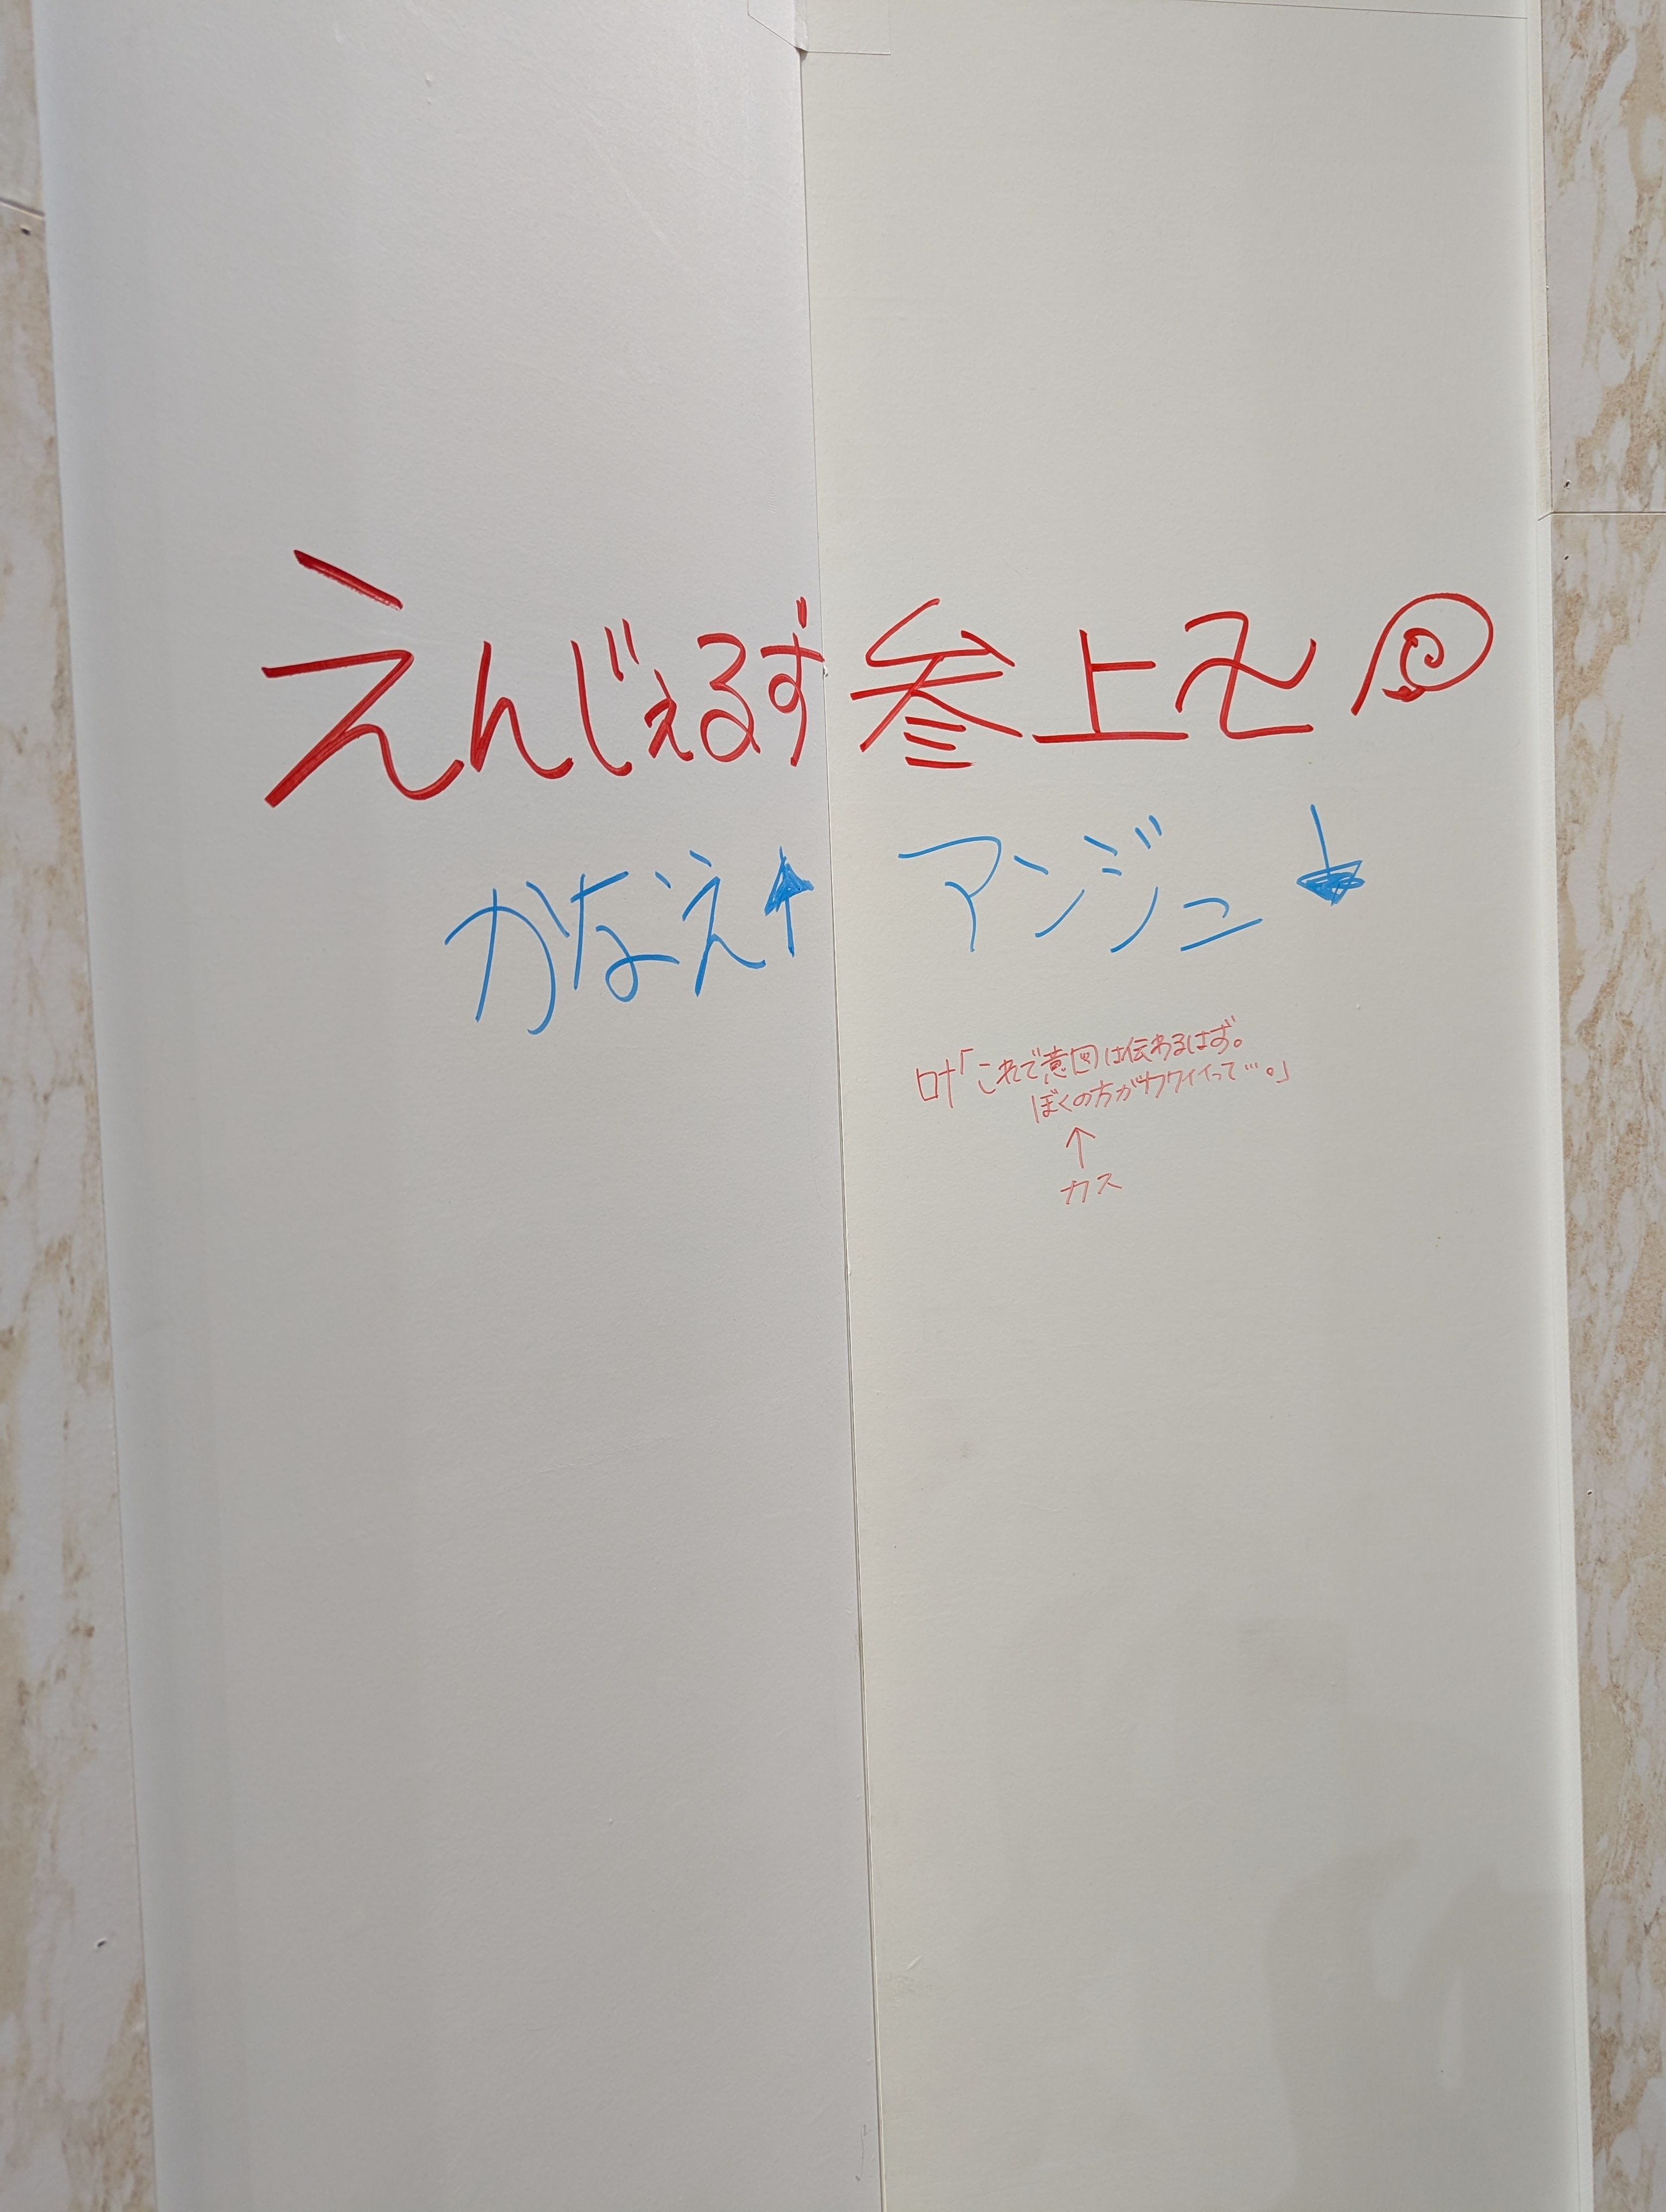 えんじぇるず参上卍
かなえ↑ アンジュ↓
叶「これで意図は伝わるはず。
ぼくの方がカワイイって…。」
↑
カス